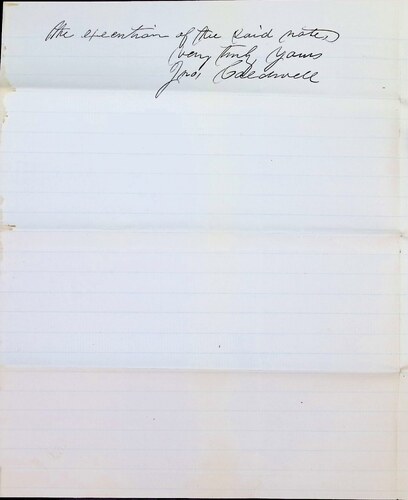 the execution of the said notes
Very truly yours
Jno. Caldwell